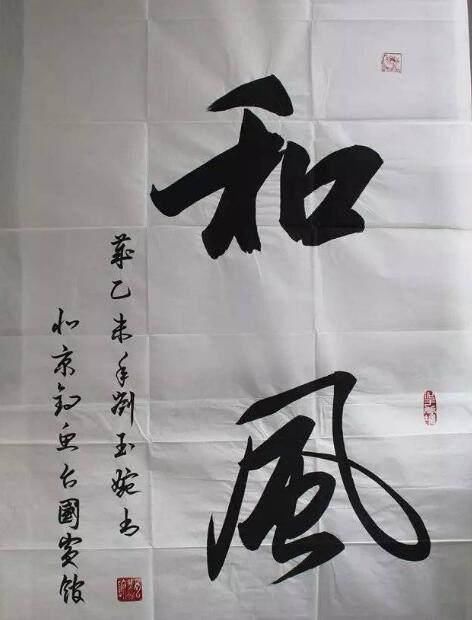 和風
歲乙未年劉玉婉书
北京钓鱼台國賓館